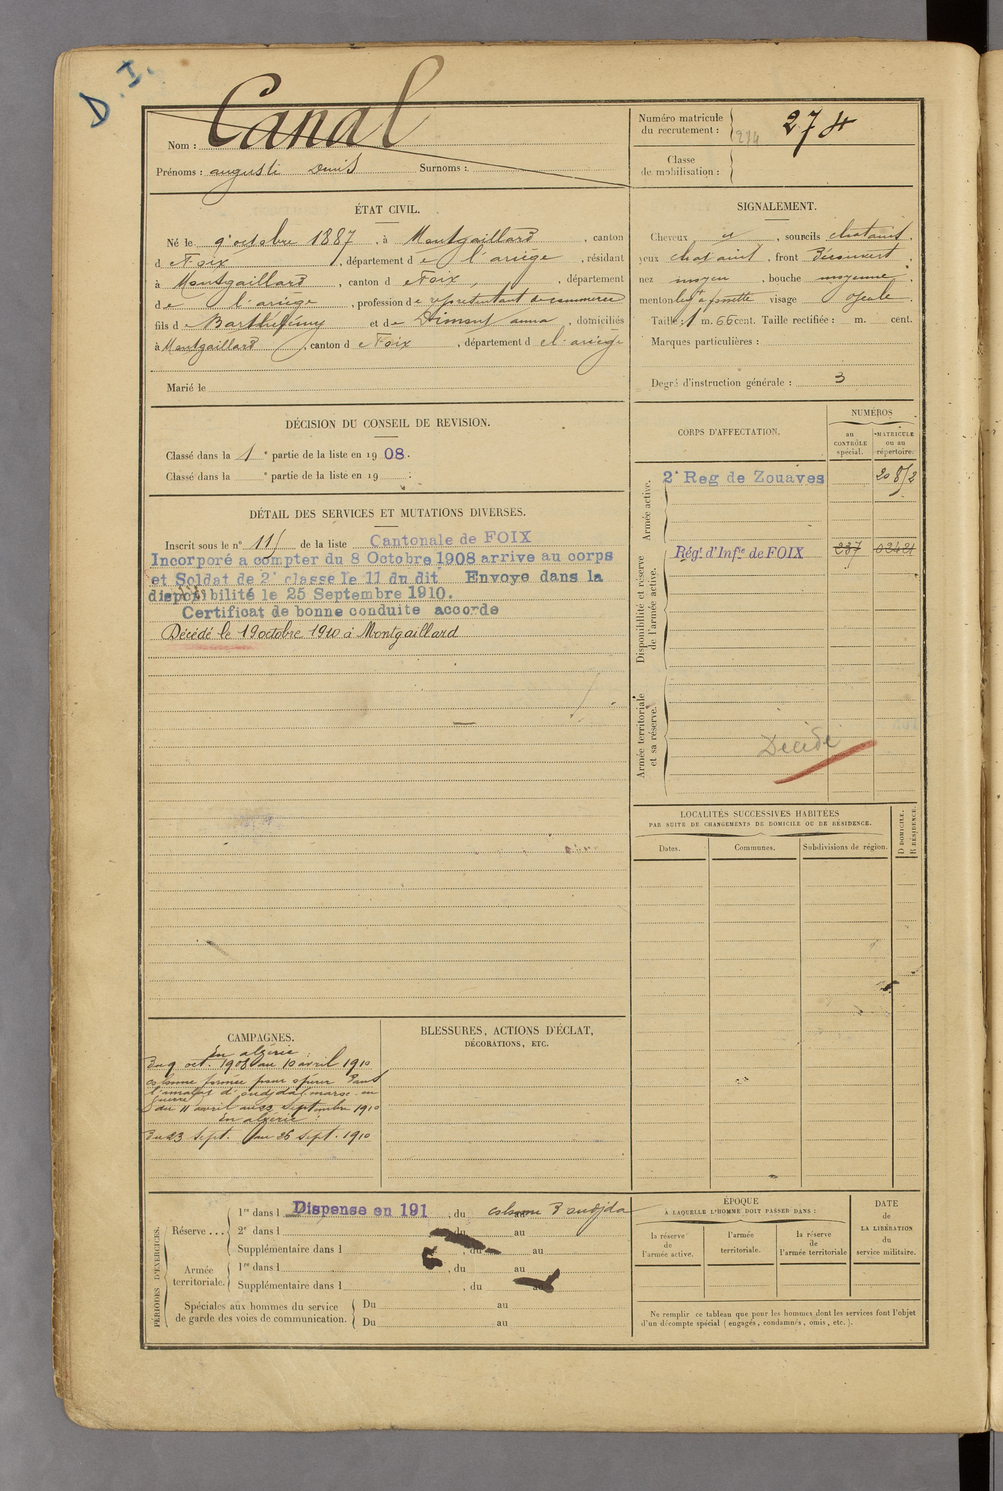 D. I.
Nom : Canal
Prénoms : augusti Denis Surnoms :
Numéro matricule du recrutement : 274
274
Classe de mobilisation :
ÉTAT CIVIL.
Né le 9 octobre 1887, à Montgaillard, canton
d e Foix, département d e l'ariège, résidant
à Montgaillard, canton d e Foix, département
d e l'ariège, profession d e représentant de commerce
fils d e Barthélémy et d e anna, domiciliés
à Montgaillard, canton d e Foix, département d e l'ariège
Marié le
SIGNALEMENT.
Cheveux et, sourcils chatains,
yeux chatains, front Découvert,
nez moyen, bouche moyenne,
menton à fossette visage ovale
Taille : 1 m. 66 cent. Taille rectifiée : m. cent.
Marques particulières :
Degré d'instruction générale : 3
DÉCISION DU CONSEIL DE REVISION.
Classé dans la 1 e partie de la liste en 1908.
Classé dans la e partie de la liste en 19 .
DÉTAIL DES SERVICES ET MUTATIONS DIVERSES.
Inscrit sous le n° 115 de la liste Cantonale de FOIX
Incorporé a compter du 8 Octobre 1908 arrive au corps
et Soldat de 2e classe le 11 du dit Envoye dans la
disponibilité le 25 Septembre 1910.
Certificat de bonne conduite accorde
Décédé le 19 octobre 1910 à Montgaillard
CORPS D'AFFECTATION.
NUMÉROS
au CONTRÔLE spécial.
MATRICULE ou au répertoire.
Armée active.
2e Reg de Zouaves 2852
Disponibilité et réserve de l'armée active.
Rég.t d'Inf.ie de FOIX 287 02421
Armée territoriale et sa réserve.
Décédé
LOCALITÉS SUCCESSIVES HABITÉES
PAR SUITE DE CHANGEMENTS DE DOMICILE OU DE RÉSIDENCE.
Dates. Communes. Subdivisions de région. D DOMICILE. R RÉSIDENCE.
CAMPAGNES.
En algérie :
Du 9 oct. 1908 au 10 avril 1910
colonne formée pour opérer dans
l'amalat d'oudjda maroc en
guerre
du 11 avril au 22 septembre 1910
En algérie :
Du 23 sept. au 25 sept. 1910
BLESSURES, ACTIONS D'ÉCLAT,
DÉCORATIONS, ETC.
PÉRIODES D'EXERCICES.
Réserve ...
1re dans l Dispense en 191 , du colonne d'oudjda au
2e dans l , du au
Supplémentaire dans l , du au
Armée territoriale.
1re dans l , du au
Supplémentaire dans l , du au
Spéciales aux hommes du service de garde des voies de communication.
Du au
Du au
ÉPOQUE
À LAQUELLE L'HOMME DOIT PASSER DANS :
la réserve de l'armée active.
l'armée territoriale.
la réserve de l'armée territoriale
DATE de LA LIBÉRATION du service militaire.
Ne remplir ce tableau que pour les hommes dont les services font l'objet
d'un décompte spécial (engagés, condamnés, omis, etc.).